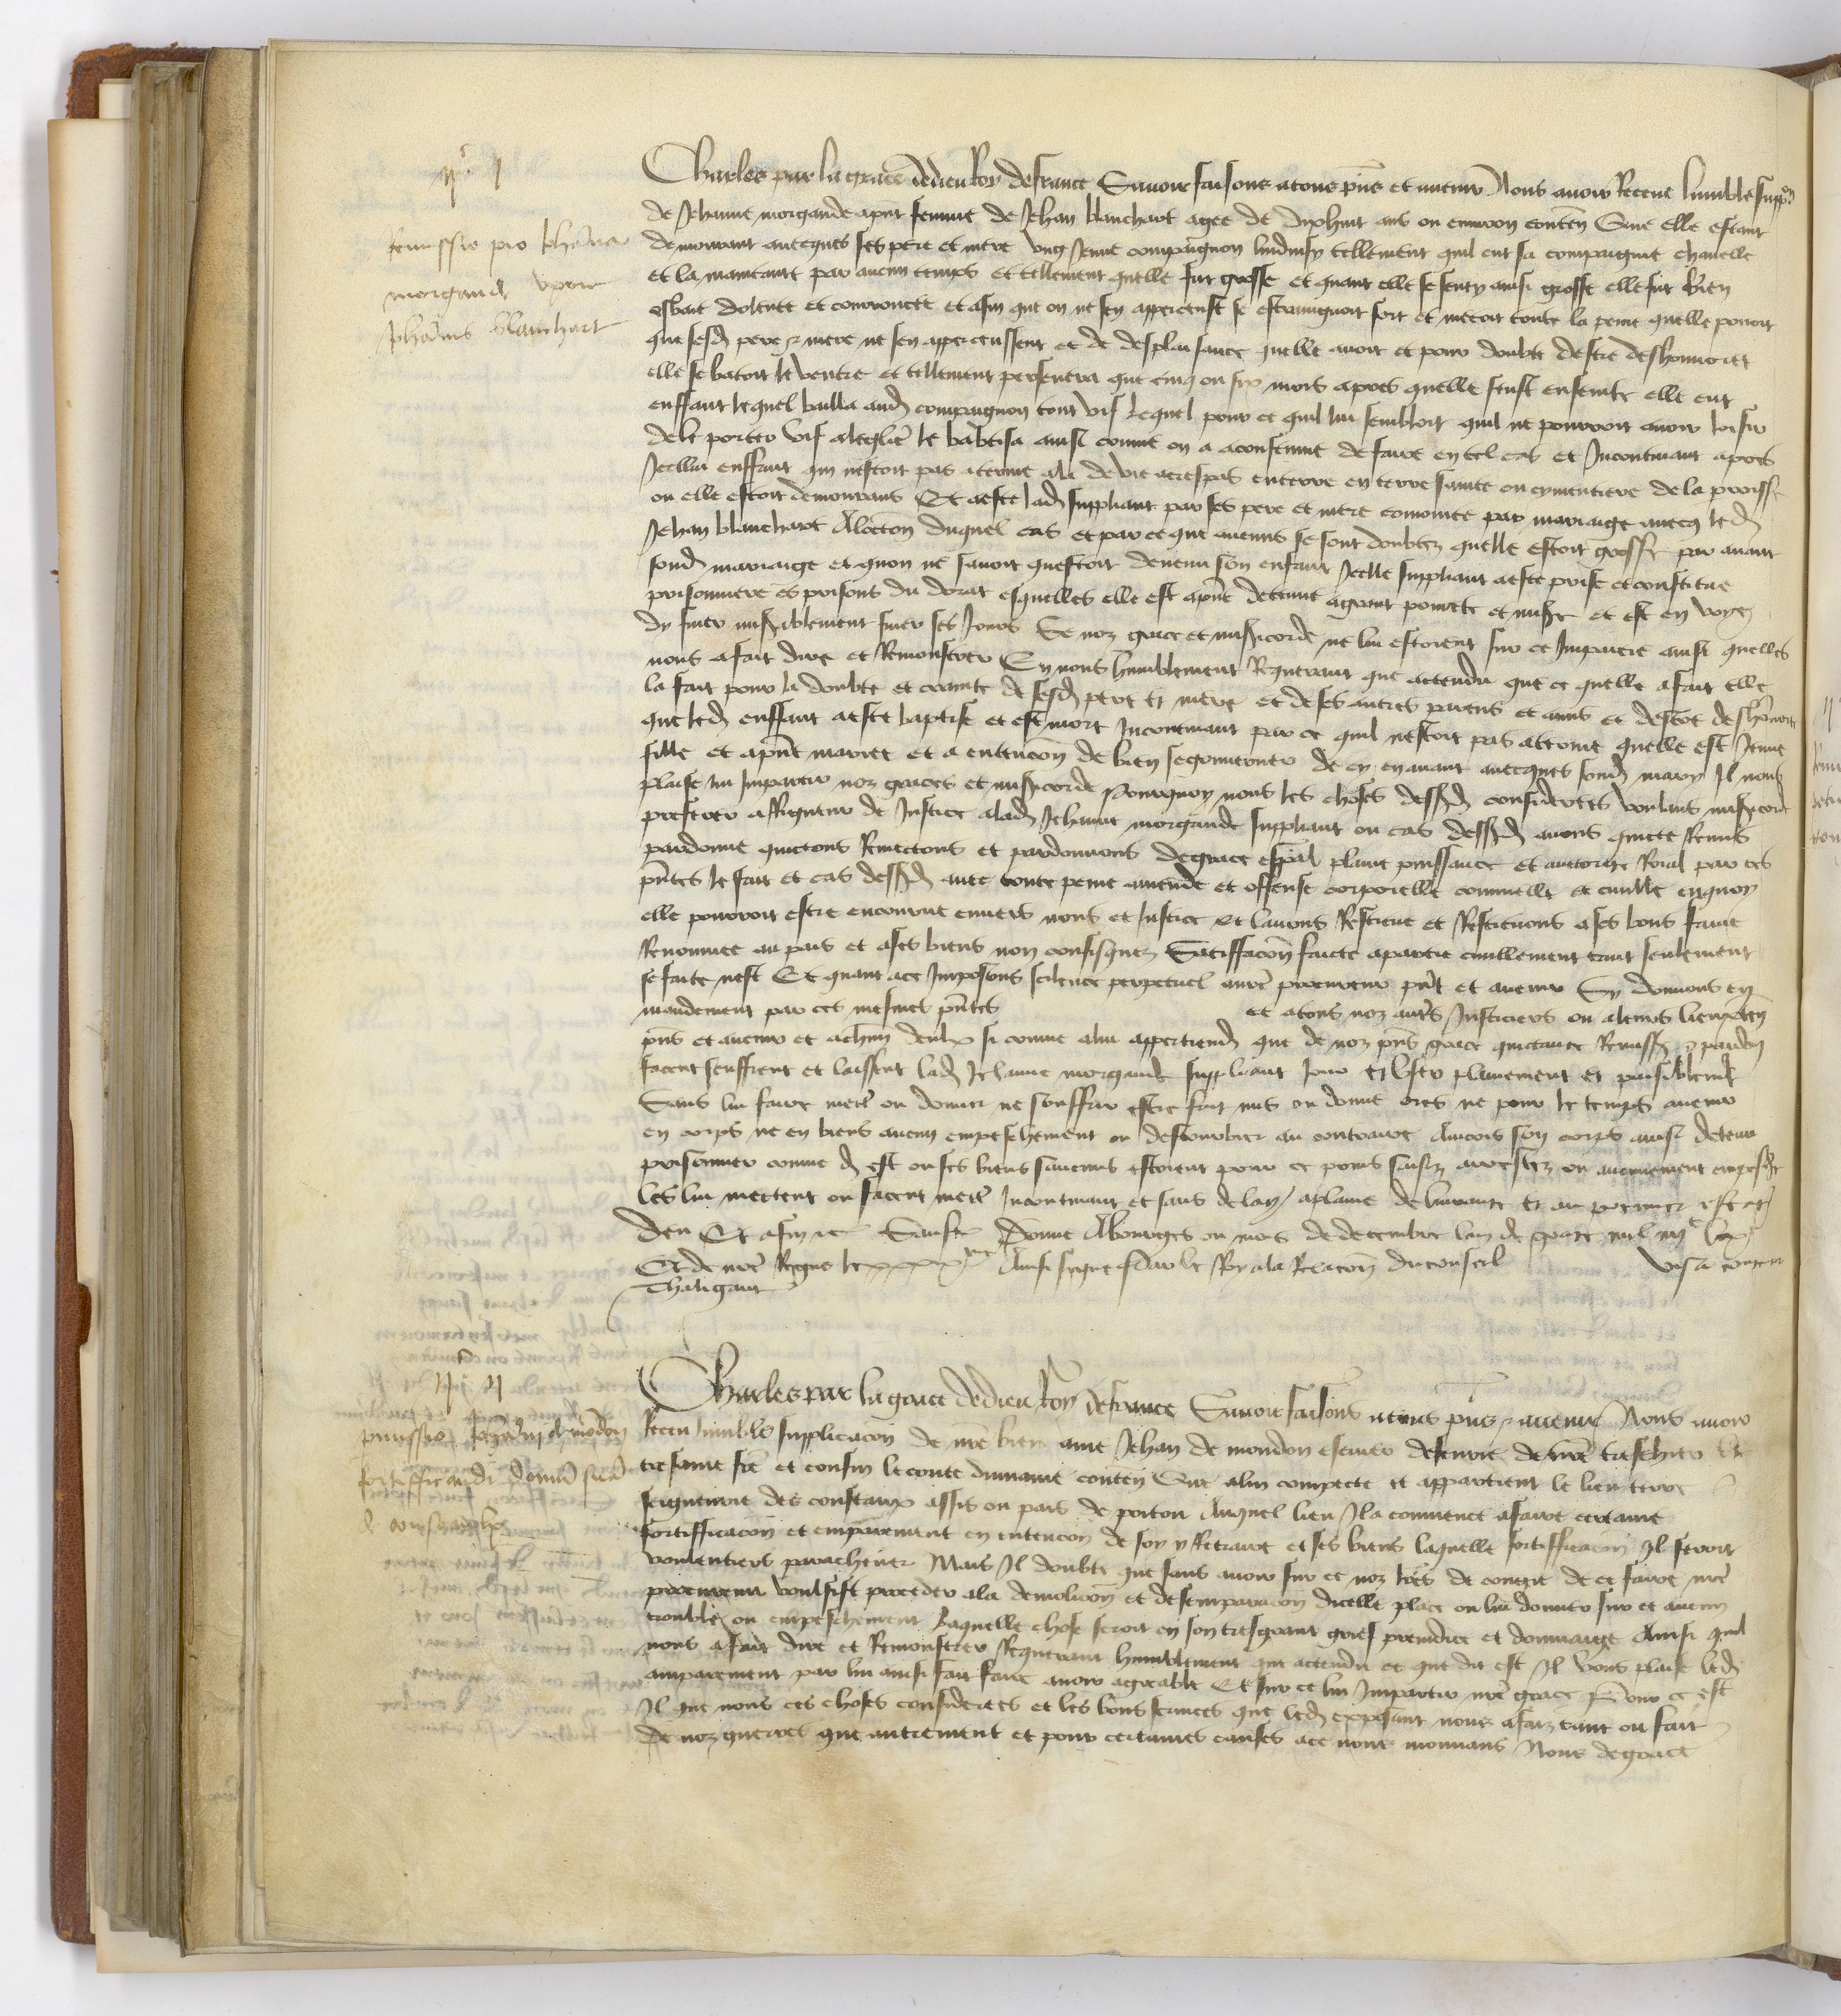 Charles par la grace de dieu Roy de france Savoir faisons a tous pns et avenir Nous avoir Receue lumble suppon
de Jehanne morgande apnt femme de Jehan blanchart agee de dixhuit ans ou environ conten Que elle estant
demourant avecques ses pere et mere ung Jeune compaignon lui tellement quil eut sa compaignie charnelle
et la maintint par aucun temps et tellement quelle fut grosse et quant elle se senty ainsi grosse elle fut bien
esbaie dolente et courroucee et afin que on ne sen apperceust se estraingnoit fort et mectoit toute la peine quelle povoit
que sesd pere et mere ne sen apperceussent et de desplaisance quelle avoit et pour doubte destre deshonnoree
elle se batoit le ventre et tellement persevera que cinq ou six mois apres quelle feust ensainte elle eut
enffant lequel bailla aud compaignon tout vif lequel pour ce quil lui sembloit quil ne pourroit avoir loisir
de le porter vif a leglise le baptisa ainsi comme on a acoustumé de faire en tel cas et Incontinant apres
Icellui enffant qui nestoit pas a terme ala de vie a trespas enterre en terre sainte ou cymentiere de la parroisse
ou elle estoit demourans Et a este lad suppliant par ses pere et mere conioincte par mariaige avecq led
Jehan blanchart A loccon duquel cas et par ce que aucuns se sont doubtez quelle estoit grosse par avant
sond mariaige et quon ne savoit questoit devenu son enfant Icelle suppliant a este prise et constituee
prisonniere es prisons du dorat esquelles elle est apnt detenue a grant povrete et misere et est en voye
dy finer miserablement ses Jours Se noz grace et misericorde ne lui estoient sur ce Imparties ainsi quelle
nous a fait dire et Remonstrer En nous humblement Requerant que actendu que ce quelle a fait elle
la fait pour la doubte et crainte de sesd pere et mere et de ses autres parens et amis et destre deshonnoree
que led enffant a este baptise et est mort Incontinant par ce quil nestoit pas a terme quelle est Jeune
fille et apnt mariee et a entencion de bien se gouverner de cy en avant avecques sond mary Il nous
plaise lui Impartir noz graces et misericorde Pourquoy nous les choses dessusd considerees voulans misericorde
preferer a Rigueur de Justice a lad Jehanne morgande suppliant ou cas dessusd avons quicte Remis
pardonne quictons Remectons et pardonnons de grace espal plaine puissance et auctorite Roial par ces
pntes le fait et cas dessusd avec toute peine amende et offense corporelle criminelle et civille en quoy
elle pourroit estre encourue envers nous et Justice Et lavons Restitue et Restituons a ses bons fame
Renommee au pais et a ses biens non confisquez Satisfacon faicte a partie civillement tant seulement
se faite nest Et quant a ce Imposons scilence perpetuel a nre procureur pnt et avenir Sy donnons en
mandement par ces mesmes pntes et a tous noz autres Justiciers ou a leurs lieuxten
pns et avenir et a chun deulx si comme a lui appertiendra que de noz pns grace quictance Remission et pardon
facent seuffrent et laissent lad Jehanne morgande suppliant Joir et user plainement et paisiblement
Sans lui faire mectre ou donner ne souffrir estre fait mis ou donne ores ne pour le temps avenir
en corps ne en biens aucun empeschement ou destourbier au contraire Aincois son corps ainsi detenu
prisonnier comme dit est ou ses biens saucuns estoient pour ce prins saisiz arrestez ou aucunement empeschez
les lui mectent ou facent mectre Incontinant et sans delay a plaine delivrance et au premier estat et
deu Et afin etc Sauf etc Donne A bourges ou mois de decembre lan de grace mil iiiic lix
Et de nre Regne le xxxviiime Ainsi signe Par le Roy a la Relacion du conseil Visa conten
Chaligaut
Remissio pro Johanna
morgande uxore
Johannis blanchart
Charles par la grace de dieu Roy de france Savoir faisons a tous pns et avenir Nous avoir
Receu lumble supplicacon de nre bien ame Jehan de mondon escuier de nre treschier et
tresame fre et cousin le conte du maine conten Que a lui compecte et appartient le lieu terre
seigneurie des constaux assis ou pais de poitou Auquel lieu Il a commence a faire certaine
fortifficacon et emparement en entencon de soy y Retraire et ses biens laquelle fortifficacion Il feroit
voulentiers parachever Mais Il doubte que sans avoir sur ce noz lres de congie de ce faire nre
procureur voulsist proceder a la demolicon et desemparacon dicelle place ou lui donner sur ce aucun
trouble ou empeschement Laquelle chose seroit en son tresgrant grief preiudice et dommaige Ainsi quil
nous a fait dire et Remonstrer Requerant humblement que actendu ce que dit est Il nous plaise led
emparement par lui ainsi fait faire avoir agreable Et sur ce lui Impartir nre grace Pour ce est
Il que nous ces choses considerees et les bons services que led exposant nous a faiz tant ou fait
de noz guerres que autrement et pour certaines causes a ce nous mouvans Nous de grace
Permissio Johanni de mondon
fortifficandi domum suam
de constaulx